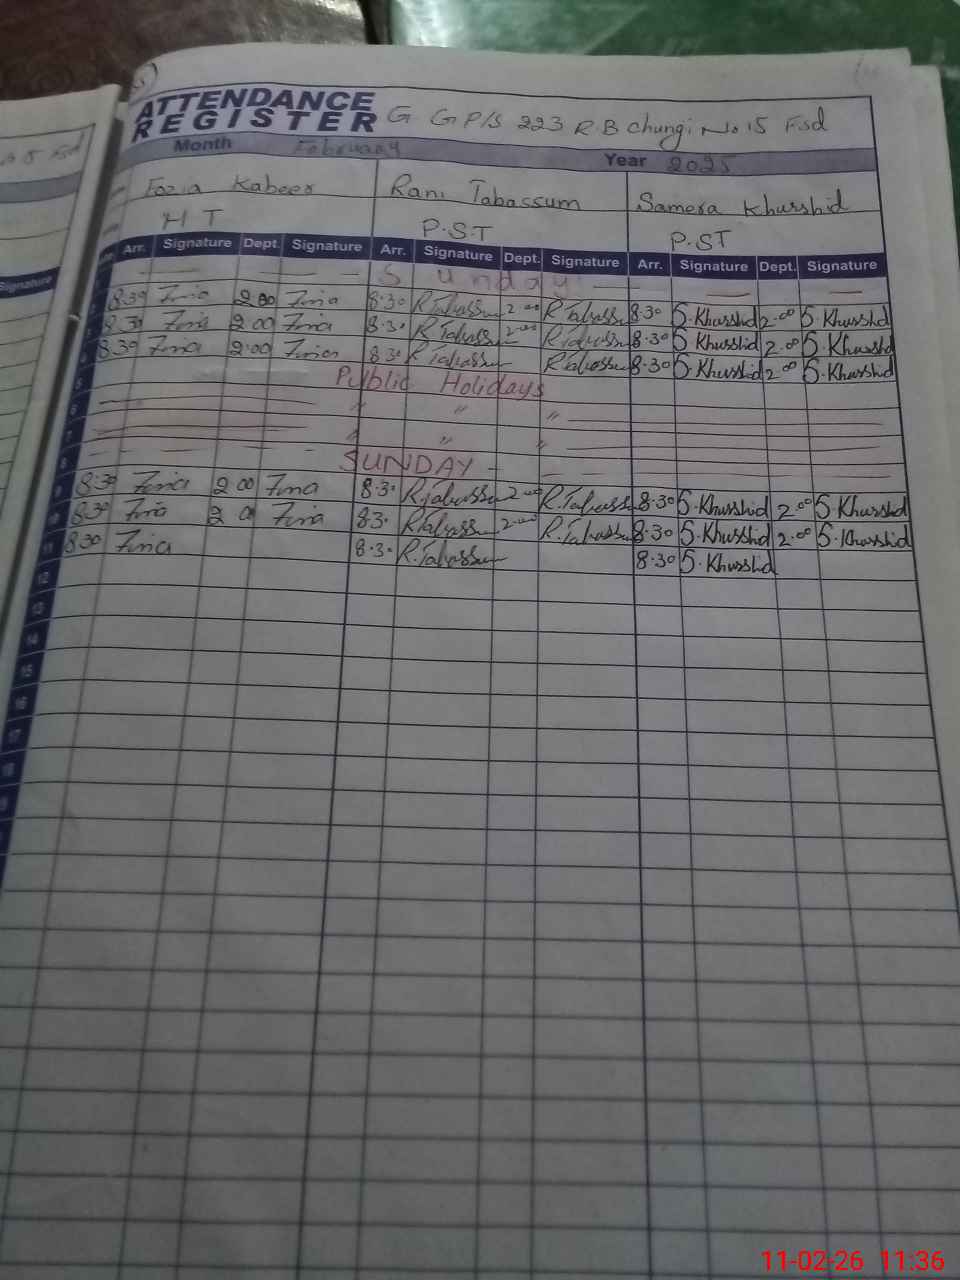 ATTENDANCE
REGISTER G GP/S 223 R.B Chungi No 15 Fsd
Month February Year 2025
Fozia Kabeer Rani Tabassum Samera Khurshid
H T P.S.T P.ST
Arr. Signature Dept. Signature Arr. Signature Dept. Signature Arr. Signature Dept. Signature
Sunday
2 8:30 2 00 8.30 R.Tabassum 2.00 R.Tabassum 8.30 S.Khurshid 2.00 S.Khurshid
3 8.30 2 00 8.30 R.Tabassum 2.00 R.Tabassum 8.30 S.Khurshid 2.00 S.Khurshid
4 8.30 2.00 8.30 R.Tabassum R.Tabassum 8.30 S.Khurshid 2.00 S.Khurshid
5 Public Holidays
6 " " "
7 " " "
8 SUNDAY
9 8:30 2 00 8.30 R.Tabassum 2.00 R.Tabassum 8.30 S.Khurshid 2.00 S.Khurshid
10 8:30 2 00 8.30 R.Tabassum 2.00 R.Tabassum 8.30 S.Khurshid 2.00 S.Khurshid
11 8:30 8.30 R.Tabassum 8.30 S.Khurshid
12
13
14
15
16
17
18
Signature
15 Fsd
11-02-26 11:36